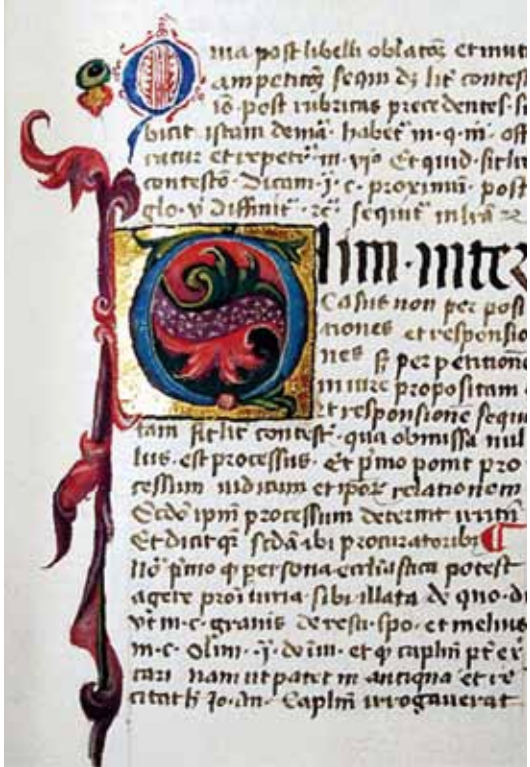 Quia post libelli oblatōꝫ et mut
am petitōꝫ sequi dꝫ lit̄ contest
iō post rubricas precedentes s
bicit istam
et repetit̄ Et quid sit lit
contestō Dicam ȳ c. proximū post
glo. v̄ diffinit̄ rc̄ sequit̄ infrā
Olim. inter
Casus non per posi
tiones et responsio
nes sꝫ per petitione
in iure propositam
et responsione sequu
tam fit lit̄ contest̄. qua obmissa nul
lus. est processus. Et p̄mo ponit pro
cessum iudicum et ip̄oꝝ relationem
Secdō ip̄m processum determīt irritū
Et dicit qꝛ secdā ibi procuratoribꝫ
Nō p̄mo ꝙ persona eccl̄iastica potest
agere pro iniuria sibi illata de quo. di
vt̄ m. c. grauis de resti. spo. et melius
m. c. Olim. ȳ. de iniu. et ꝙ capl̄m pt̄ ex
cari nam ut patet in antiqua et re
citat h̄ Jo. an. Capl̄m irrogauerat